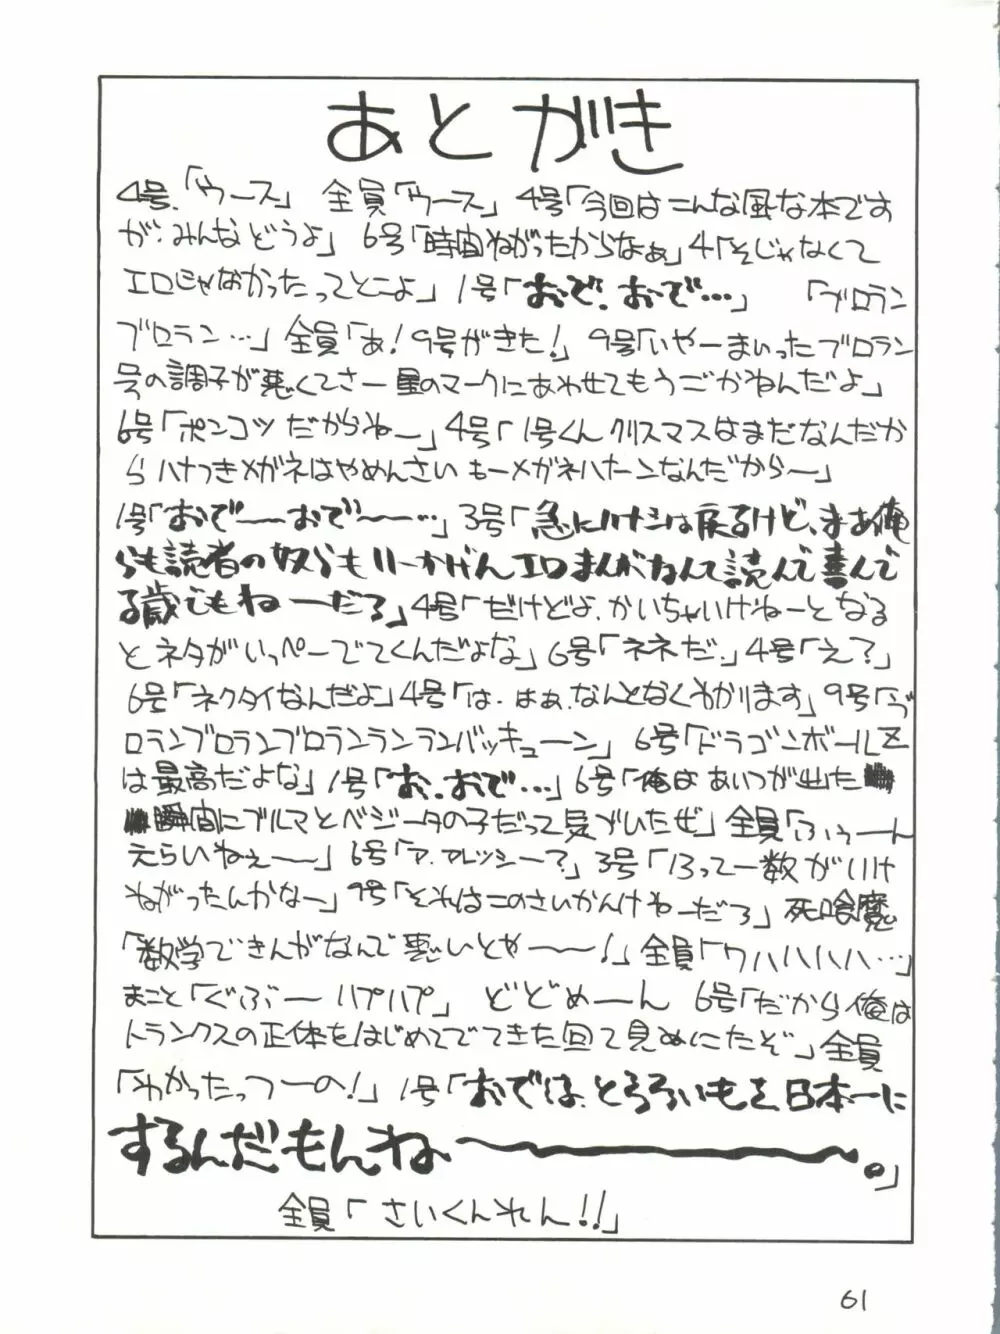 あとがき
4号.「ウース」 全員「ウース」 4号「今回はこんな風な本です
が、みんなどうよ」 6号「時間ねがったからなぁ」4「そじゃなくて
エロじゃなかったってとこよ」 1号「おで、おで…」 「ブロラン
ブロラン…」全員「あ!9号がきた!」 9号「いやーまいったブロラン
号の調子が悪くてさー 星のマークにあわせてもうごかねんだよ」
6号「ポンコツだからねー」4号「1号くん クリスマスはまだなんだか
らハナつきメガネはやめんさい もーメガネハターンなんだから〜」
1号「おで――おで――…」3号「急にハナシは戻るけど、まあ俺
らも読者の奴らもいーかげんエロまんがなんて読んで喜んで
る歳でもねーだろ」4号「だけどよ、かいちゃいけねーとなる
とネタがいっぺーでてくんだよな」6号「ネネだ.」4号「え?」
6号「ネクタイなんだよ」4号「は.はぁ、なんとなくわかります」9号「ブ
ロランブロランブロランランランバッキューン」 6号「ドラゴンボールZ
は最高だよな」1号「お、おで…」6号「俺はあいつが出た
瞬間にブルマとベジータの子だって気づいたぜ」全員「ふぅーん
えらいねぇ――」 6号「ア、アレッシー?」3号「13って一数がいけ
ねがったんかなー」 9号「それはこのさいかんけねーだろ」死喰魔
「数学できんがなんで悪いとや――!」全員「ワハハハハ…」
まこと「ぐぶーハプハプ」 どどめーん 6号「だから俺は
トランクスの正体をはじめてでてきた回で見ぬいたぞ」全員
「わかったっつーの!」1号「おでは、とろろいもを、日本一に
するんだもんね――――――。」
全員「さいくんれん!!」
61